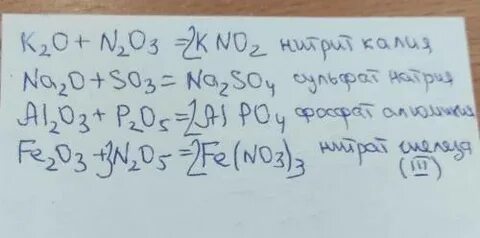 K₂O + N₂O₃ = 2KNO₂ нитрит калия
Na₂O + SO₃ = Na₂SO₄ сульфат натрия
Al₂O₃ + P₂O₅ = 2AlPO₄ фосфат алюминия
Fe₂O₃ + 3N₂O₅ = 2Fe(NO₃)₃ нитрат железа
(III)